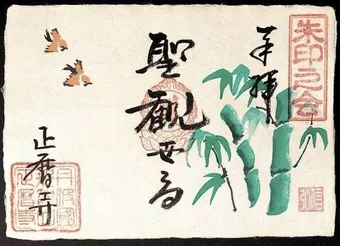 朱印之会
奉拝
聖観世音
正暦寺